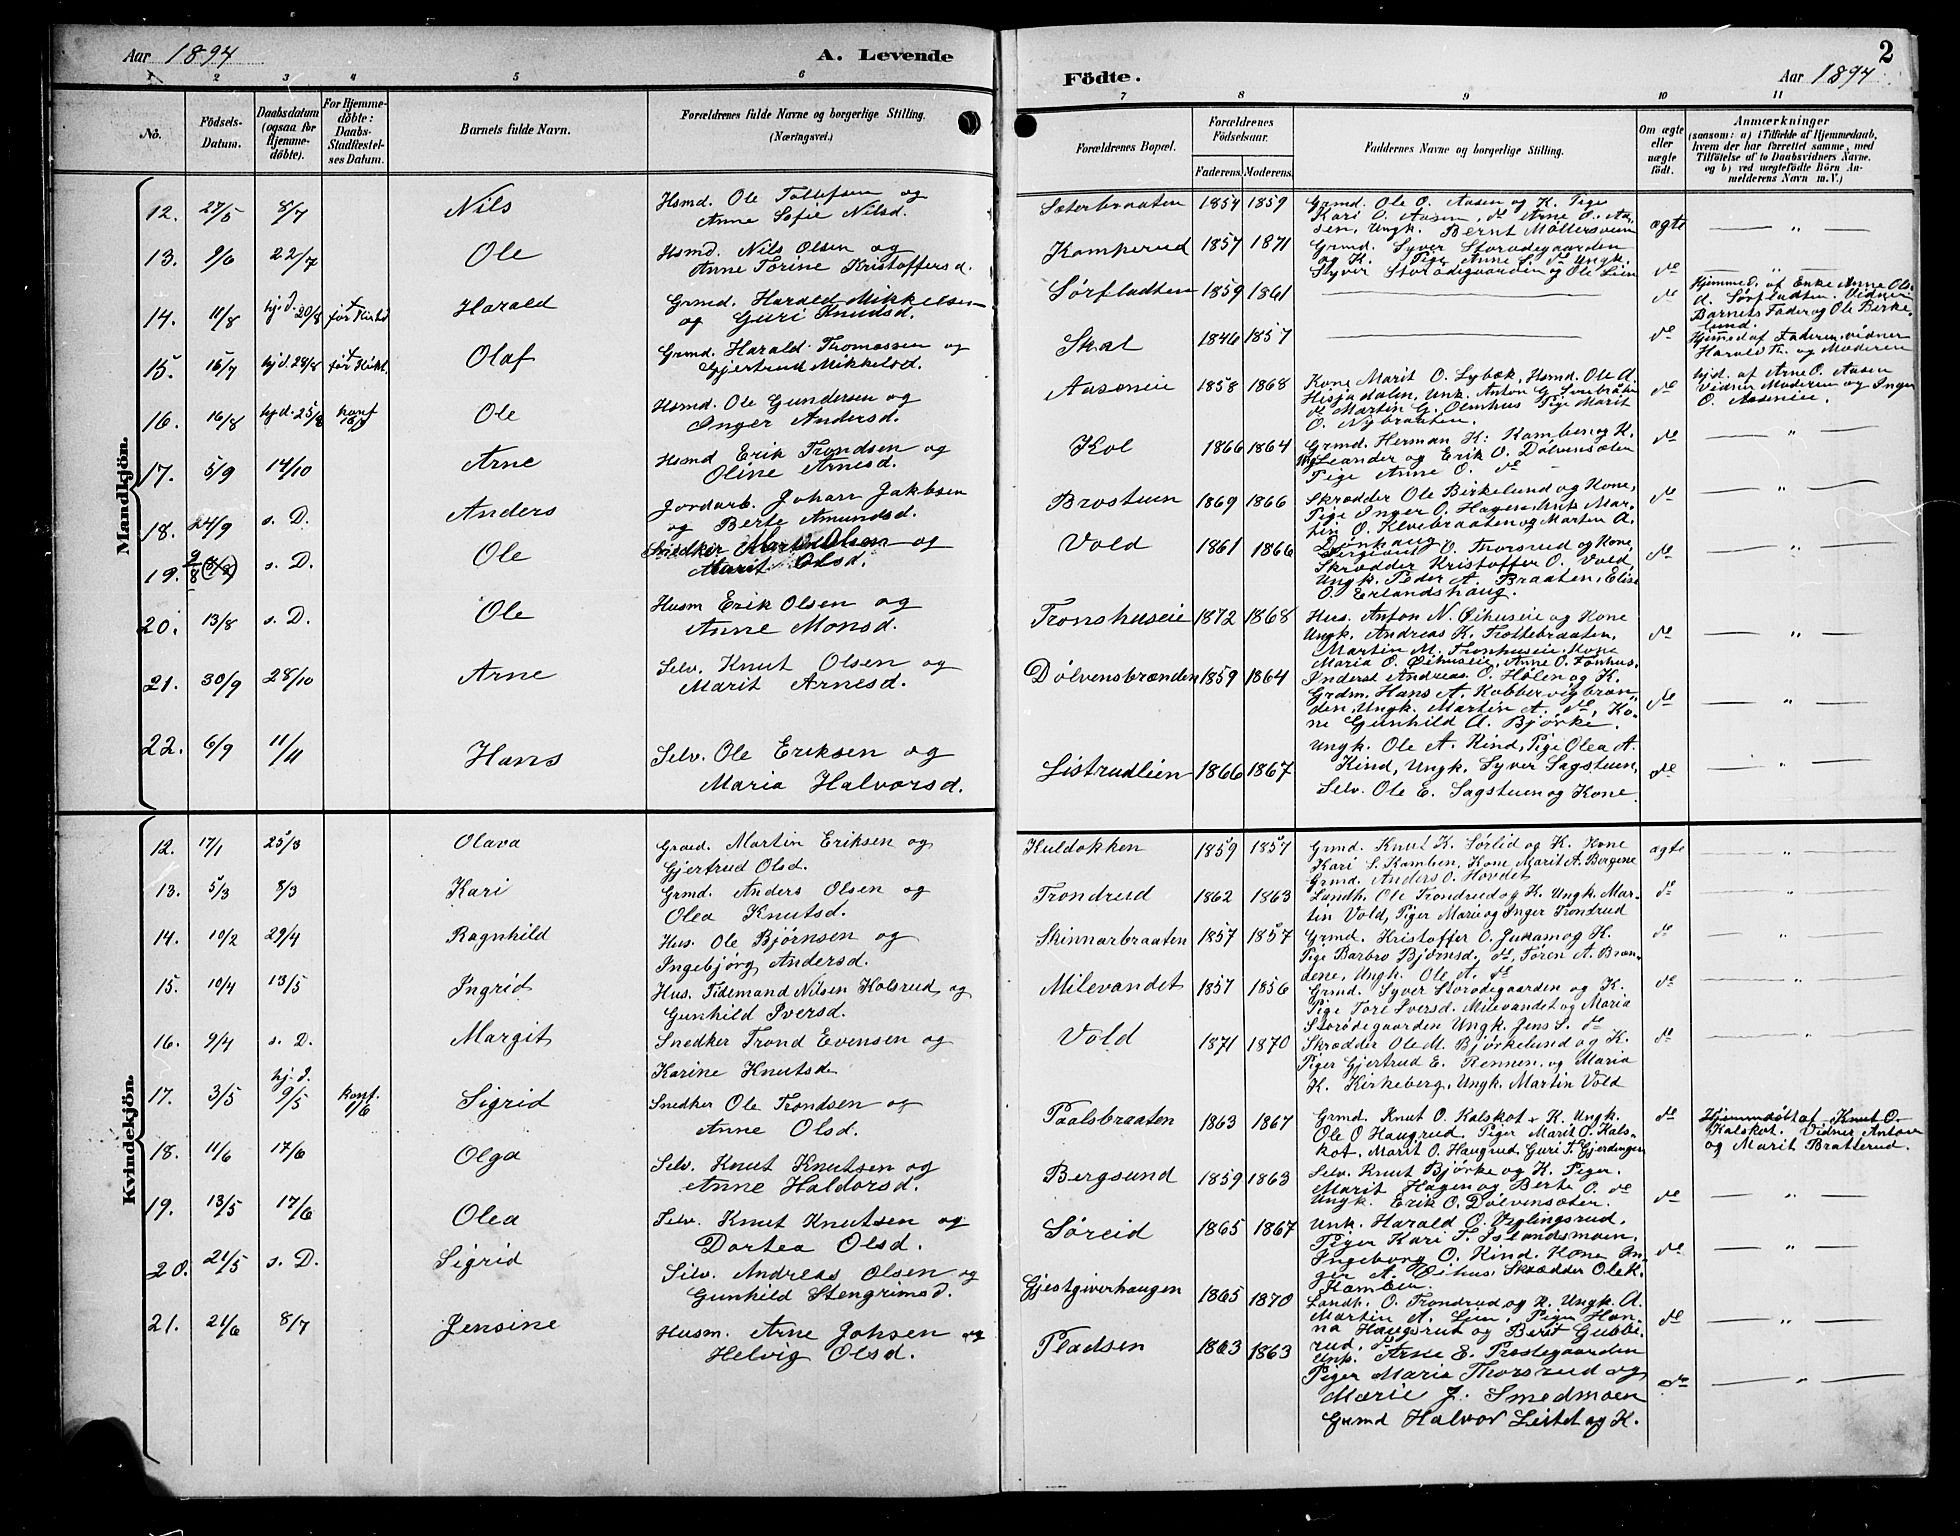 Aar 1894 A. Levende
Födte. Aar 1894 2
1 2 3 4 5 6
7 8 9 10 11
No.
Födsels-
Datum.
Daabsdatum
(ogsaa for
Hjemme-
döbte).
For Hjemme-
döbte:
Daabs-
Stadfæstel-
ses Datum.
Barnets fulde Navn.
Forældrenes fulde Navne og borgerlige Stilling.
(Næringsvei.)
Forældrenes Bopæl.
Forældrenes
Födselsaar.
Faderens. Moderens.
Faddernes Navne og borgerlige Stilling.
Om ægte
eller
uægte
födt.
Anmærkninger
(saasom: a) i Tilfælde af Hjemmedaab,
hvem der har forrettet samme, med
Tilföielse af to Daabsvidners Navne.
og b) ved uægtefödte Börn An-
melderens Navn m. V.)
Mandkjön.
12. 27/5 8/7 Nils Hsmd. Ole Tollefsen og
Anne Sofie Nilsd.
13. 9/6 22/7 Ole Hsmd. Nils Olsen og
Anne Torine Kristoffersd.
14. 11/8 hj.d. 20/8 Harald Grmd. Harald Mikkelsen
og Guri Knudsd.
15. 16/7 hjd. 28/8 Olaf Grmd. Harald Thomassen og
Gjertrud Mikkelsd.
16. 16/8 hjd. 25/8 konf Ole Hsmd. Ole Gundersen og
Inger Andersd.
17. 5/9 14/10 Arne Hsmd Erik Trondsen og
Oline Arnesd.
18. 24/9 s. D. Anders Jordarb. Johan Jakbsen
og Berte Amundsd.
19. s. D. Ole Snedker Martin Olsen og
Marit Olsd.
20. 13/8 s. D. Ole Husm Erik Olsen og
Anne Monsd.
21. 30/9 28/10 Arne Selv. Knut Olsen og
Marit Arnesd.
22. 6/9 11/11 Hans Selv. Ole Eriksen og
Maria Halvorsd.
Kvindekjön.
12. 17/1 25/3 Olava Grmd. Martin Eriksen og
Gjertrud Olsd.
13. 5/3 8/3 Kari Grmd. Anders Olsen og
Olea Knutsd.
14. 10/2 29/4 Ragnhild Hus. Ole Bjørnsen og
Ingebjørg Andersd.
15. 10/4 13/5 Ingrid Hus. Tidemand Nilsen Kolsrud og
Gunhild Iversd.
16. 9/4 s. D. Margit Snedker Trond Evensen og
Karine Knutsd
17. 3/5 hj. d. 9/5 konf. 1/6 Sigrid Snedker Ole Trondsen og
Anne Olsd.
18. 11/6 17/6 Olga Selv. Knut Knutsen og
Anne Haldorsd.
19. 13/5 17/6 Olea Selv. Knut Knutsen og
Dortea Olsd.
20. 21/5 s. D. Sigrid Selv. Andreas Olsen og
Gunhild Stengrimsd.
21. 21/6 8/7 Jensine Husm. Arne Johsen og
Helvig Olsd.
Sæterbraaten 1854 1859 Grmd. Ole O. Aasen og K. Pige
Kari O. Aasen, do Arne O. Aa-
sen, Ungk. Bernt Møllersveen ægte
Kamperud 1857 1871 Grmd. Syver Storødegaarden
og K. Pige Anne S. do Ungk.
Syver Storødegaarden og Ole Lien do
Sørfladten 1859 1861 do Hjemmed. af Enke Anne Ols-
d. Sørfladten. Vidner
Barnets Fader og Ole Birke-
lund.
Skal 1846 1857 do Hjemmed af Faderen, vidner
Harald Th. og Moderen
Aaseneie 1858 1868 Kone Marit O. Lybæk, Hsmd. Ole A.
Hisjadalen, Unk. Anton G.
do Martin G. Olmhus Pige Marit
O. Nybraaten. do hjd. af Arne O. Aasen
Vidner Moderen og Inger
O. Aaseneie.
Kol 1866 1864 Grmd. Herman K. Kamben og K.
Ung Leander og Erik O. Dølvensæten
Pige Anne O. do do
Brostuen 1869 1866 Skrædder Ole Birkelund og Kone,
Pige Inger O. Hagen, Unk Mar-
tin O. Klevebraaten og Marten A.
Dønhaug. do
Vold 1861 1866 O. Thorsrud og Kone,
Skrædder Kristoffer O. Vold,
Ungk. Peder A. Braaten, Elise
O. Erlandshaug. do
Tronshuseie 1872 1868 Hus. Anton N. Øihuseie og Kone
Ungk. Andreas K. Trottebraaten,
Martin M. Tronhuseie, Kone
Maria O. Øihuseie, Anne O. Fønhus. do
Dølvensbrænden 1859 1864 Inderst Andreas O. Hølen og K.
Grdm. Hans A. Kobbervigbræn-
den, Ungk. Martin A. do, Ko-
ne Gunhild A. Bjørke. do
Listrudlien 1866 1867 Ungk. Ole A. Kind, Pige Olea A.
Kind, Ungk. Syver Sagstuen,
Selv. Ole E. Sagstuen og Kone. do
Kuldokken 1859 1857 Grmd. Knut K. Sørlid og K. Kone
Kari S. Kamben, Kone Marit A. Bergene
Grmd. Anders O. Hovdet ægte
Trondrud 1862 1863 Landh. Ole Trondrud og K. Ungk. Mar-
tin Vold, Piger Marie og Inger Trondrud do
Skinnarbraaten 1857 1857 Grmd. Kristoffer O. Juvam og K.
Pige Barbro Bjørnsd. do, Tøren A. Bræn-
dene, Ungk. Ole A. do do
Milevandet 1857 1856 Grmd. Syver Storødegaarden og K.
Pige Tore Iversd. Milevandet og Maria
Storødegaarden Ungk. Jens S. do do
Vold 1871 1870 Skrædder Ole M. Bjørkelund og K.
Piger Gjertrud E. Rennen, og Maria
K. Kirkeberg, Ungk. Martin Vold do
Paalsbraaten 1863 1867 Grmd. Knut O. Kalskot & K. Ungk.
Ole O Haugrud, Piger Marit O. Kals-
kot, Marit O. Haugrud, Guri T. Gjerdingen do Hjemmedøbt af Knut O.
Kalskot. Vidner Anton
og Marit Bratterud.
Bergsund 1859 1863 Selv. Knut Bjørke og K. Piger.
Marit Hagen og Berte O. do
Ungk. Erik O. Dølvensæten. do
Søreid 1865 1867 Unk. Harald O. Veglingsrud,
Piger Kari T. Islandsmoen,
Ingeborg O. Kind. Kone In-
ger A. Øihus, Skrædder Ole K.
Kamben. do
Gjestgiverhaugen 1865 1870 Landh. O. Trondrud og K. Ungk. A.
Martin A. Lien, Piger Han-
na Haugsrut og Berit Gubbe-
rud, do do
Pladsen 1863 1863 Unk. Arne E. Præstegaarden
Piger Maria Thorsrud og
Marie J. Smedmoen
Grmd Halvor Leitet og K. do